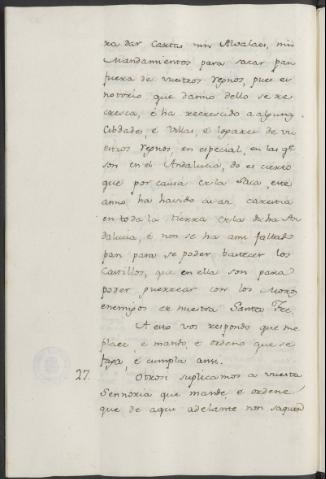 ra dar Cartas nin Alvalaes, nin
Mandamientos para sacar pan
fuera de vuestros regnos, pues es
notorio que danno dello se re
cresca, é ha recrescido a algunas
Cibdades, é Villas, é logares de vu
estros regnos en especial, en las qe
son en el Andalucia, do es cierto
que por causa de la Saca, este
anno ha havido gran carestia
en toda la tierra de la dicha An
dalucia, é non se ha ami fallado
pan para se poder bastecer los
Castillos, que en ella son para
poder guerrear con los Moros
enemigos de nuestra Santa Fee.
A esto vos respondo que me
place, é mando, é ordeno que se
faga, é cumpla ansi.
27. Otrosi suplicamos a vuestra
Sennoria que mande, é ordene,
que de aqui adelante non saquen